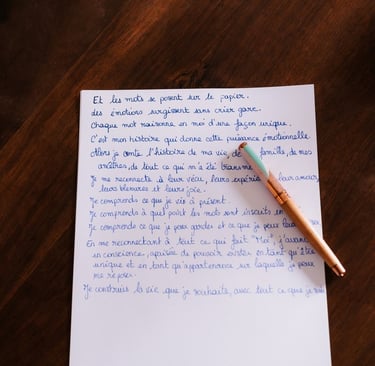 Et les mots se posent sur le papier.
des émotions surgissent sans crier gare.
Chaque mot raisonne en moi d'une façon unique.
C'est mon histoire qui donne cette puissance émotionnelle.
Alors je conte l'histoire de ma vie, de famille, de mes
ancêtres, de tout ce qui m'a été transmis
Je me reconnecte à leur vécu, leurs expéri leurs amours,
leurs blessures et leurs joies.
Je comprends ce que je vis à présent.
Je comprends à quel point les mots sont inscrits en
Je comprends ce que je veux garder et ce que je peux
En me reconnectant à tout ce qui fait "Moi", j'avance
en conscience, apaisée de pouvoir exister en tant qu'être
unique et en tant qu'appartenance sur laquelle je peux
me reposer.
Je construis la vie que je souhaite, avec tout ce que je suis